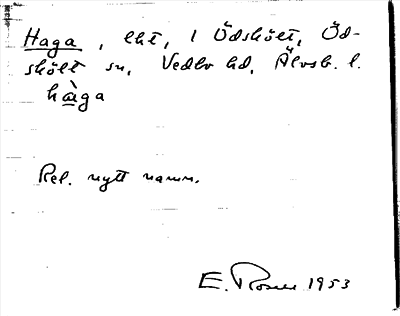 Haga, lht, 1 Ödskölt, Öd-
skölt sn, Vedbo hd, Älvsb. l.
hàga
Rel. nytt namn.
E. Rosell 1953